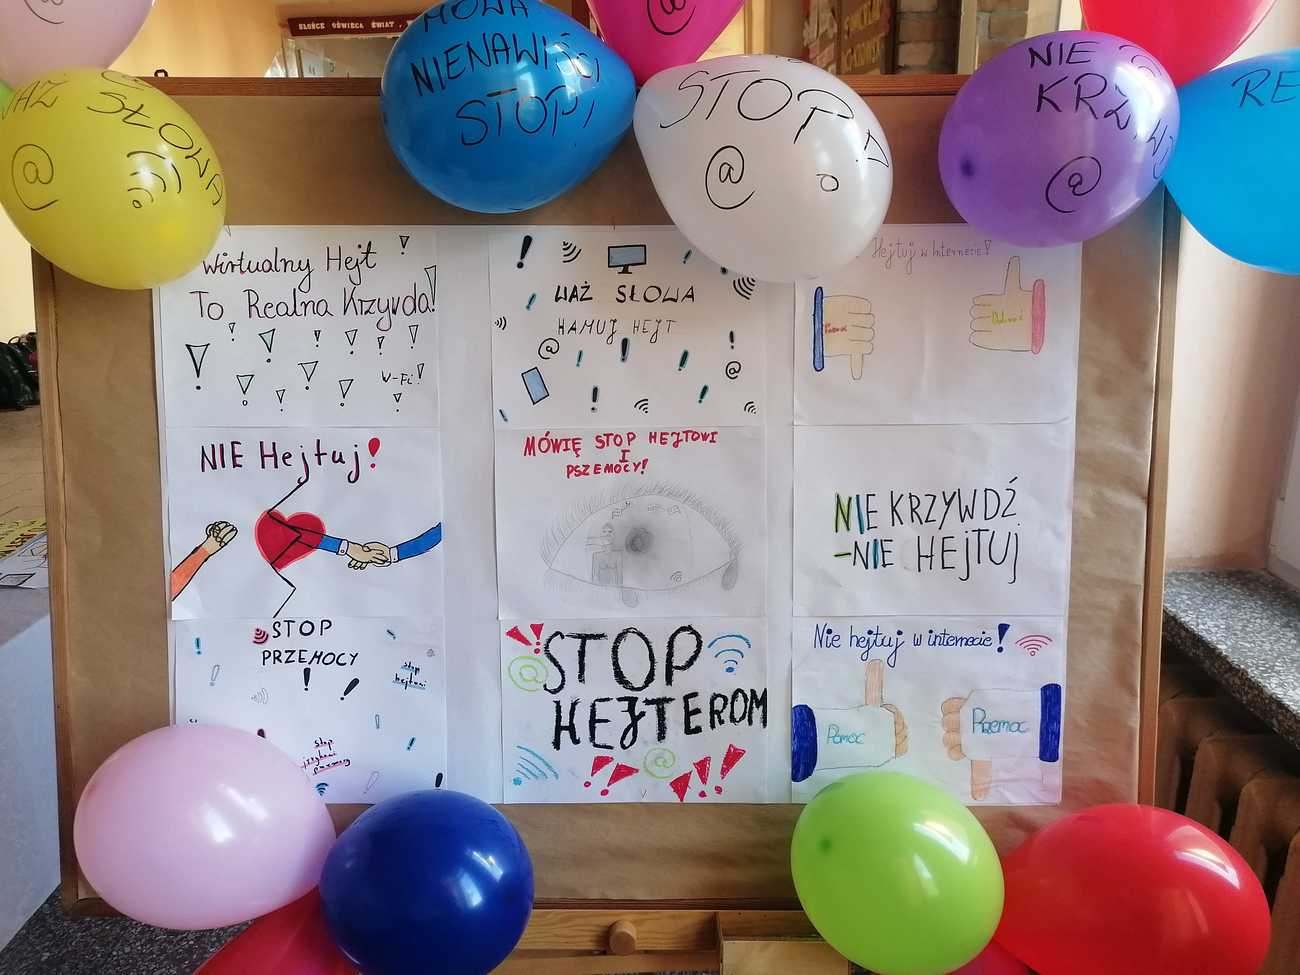 SŁOŃCE OŚWIECA ŚWIAT,
MOWA
NIENAWIŚCI
STOP!
STOP
@
NIE
KRZYWJ
@
RE
WAŻ SŁOWA
@
@
Wirtualny Hejt
To Realna Krzyvda!
W-Fi!
WAŻ SŁOWA
HAMUJ HEJT
@
@
Hejtuj w Internecie!
Pomoc
NIE Hejtuj!
MÓWIĘ STOP HEJTOWI
I
PSZEMOCY!
NIE KRZYWDŹ
-NIE HEJTUJ
STOP
PRZEMOCY
!
stop
hejtowi
stop
@
STOP
HEJTEROM
@
Nie hejtuj w internecie!
Pomoc
Przemoc